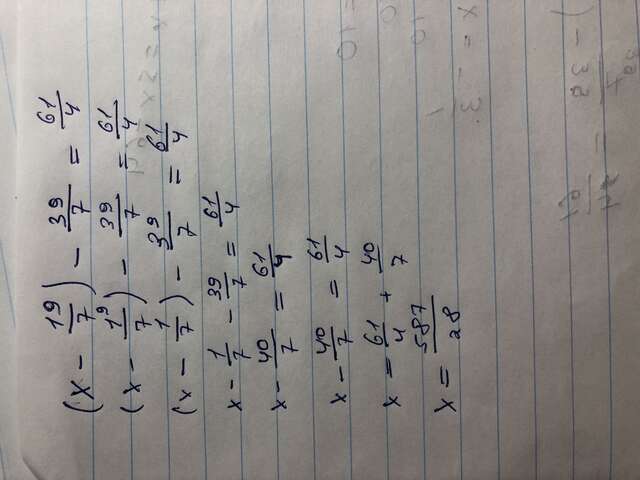 (x - 19/7) - 39/7 = 61/4
(x - 19/7) - 39/7 = 61/4
(x - 1/7) - 39/7 = 61/4
x - 1/7 - 39/7 = 61/4
x - 40/7 = 61/4
x - 40/7 = 61/4
x = 61/4 + 40/7
x = 587/28